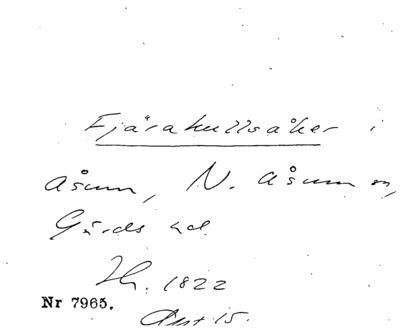 Fjärakullsåker i
Åsum, N. Åsum sn,
Gärds hd
1822
Nr 7965.
15.